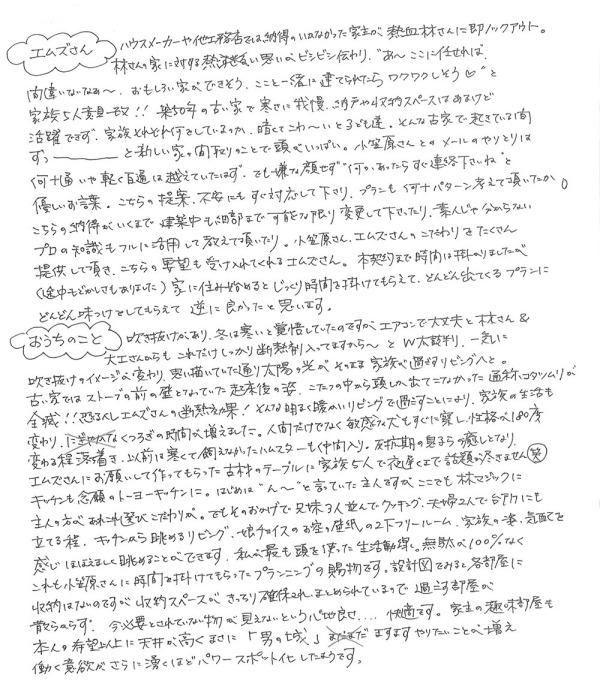 エムズさん
ハウスメーカーや他工務店では納得のいかなかった家主が 熱血林さんに即ノックアウト。
林さんの家に対する熱い思いがビシビシ伝わり、"あ〜ここに任せれば
間違いないなぁ〜、おもしろい家ができそう、ここと一緒に建てられたらワクワクしそう♡"と
家族5人満場一致!! 築50年の古い家で寒さに我慢、納戸や収納スペースはあるけど
活躍できず、家族それぞれ何をしているのか、暗くてこわ〜いと子ども達。そんな古家で起きている間
ずっ――――と新しい家の間取りのことで頭がいっぱい。小笠原さんとのメールのやりとりは
何十通いや軽く百通は越えていたはず。でも嫌な顔せず"何かあったらすぐ連絡下さいね"と
優しいお言葉。こちらの提案、不安にもすぐ対応して下さり、プランも何十パターン考えて頂いたか。
こちらの納得がいくまで 建築中も細部まで可能な限り変更して下さったり、素人じゃ分からない
プロの知識もフルに活用して教えて頂いたり。小笠原さん、エムズさんのこだわりをたくさん
提供して頂き、こちらの要望も受け入れてくれるエムズさん。本契約まで時間は掛かりましたが
(途中もどかしさもありました)家に住み始めるとじっくり時間を掛けてもらえて、どんどん出てくるプランに
どんどん味つけをしてもらえて 逆に良かったと思います。
おうちのこと
吹き抜けがあり、冬は寒いと覚悟していたのですがエアコンで大丈夫と林さん&
大工さんからも これだけしっかり断熱材入ってますから〜とW太鼓判、一気に
吹き抜けのイメージが変わり、思い描いていた通り太陽の光がそのまま家族が過ごすリビングへと。
古い家ではストーブの前の壁となっていた起床後の姿、こたつの中から頭しか出てこなかった通称コタツムリが
全滅!! 恐るべしエムズさんの断熱効果! そんな明るく暖かいリビングで過ごすことになり、家族の生活も
変わり、くつろぎの時間が増えました。人間だけでなく敏感な犬もすぐに察し、性格が180度
変わる程 落ち着き、以前は寒くて飼えなかったハムスターも仲間入り。反抗期の息子らの癒しとなり、
エムズさんにお願いして作ってもらった古材のテーブルに家族5人で夜遅くまで話題が尽きません(笑)
キッチンも念願のトーヨーキッチンに。はじめは"ん〜"と言っていた主人ですが、ここでも林マジックに
主人の方があれこれ選びこだわりが。でもそのおかげで兄妹3人並んでクッキング、夫婦2人で台所にも
立てる程、キッチンから眺めるリビング、娘チョイスのお空の壁紙の2Fフリールーム、家族の姿、気配を
感じほほえましく眺めることができます。私が最も頭を使った生活動線。無駄が100%なく
これも小笠原さんに時間を掛けてもらったプランニングの賜物です。設計図でみると各部屋に
収納はないのですが 収納スペースがきっちり確保され、まとめられているので 過ごす部屋が
散らからず、今必要とされていない物が見えないという心地良さ....快適です。家主の趣味部屋も
本人の希望以上に天井が高くまさに「男の城」ますますやりたいことが増え
働く意欲がさらに湧くほどパワースポット化したようです。